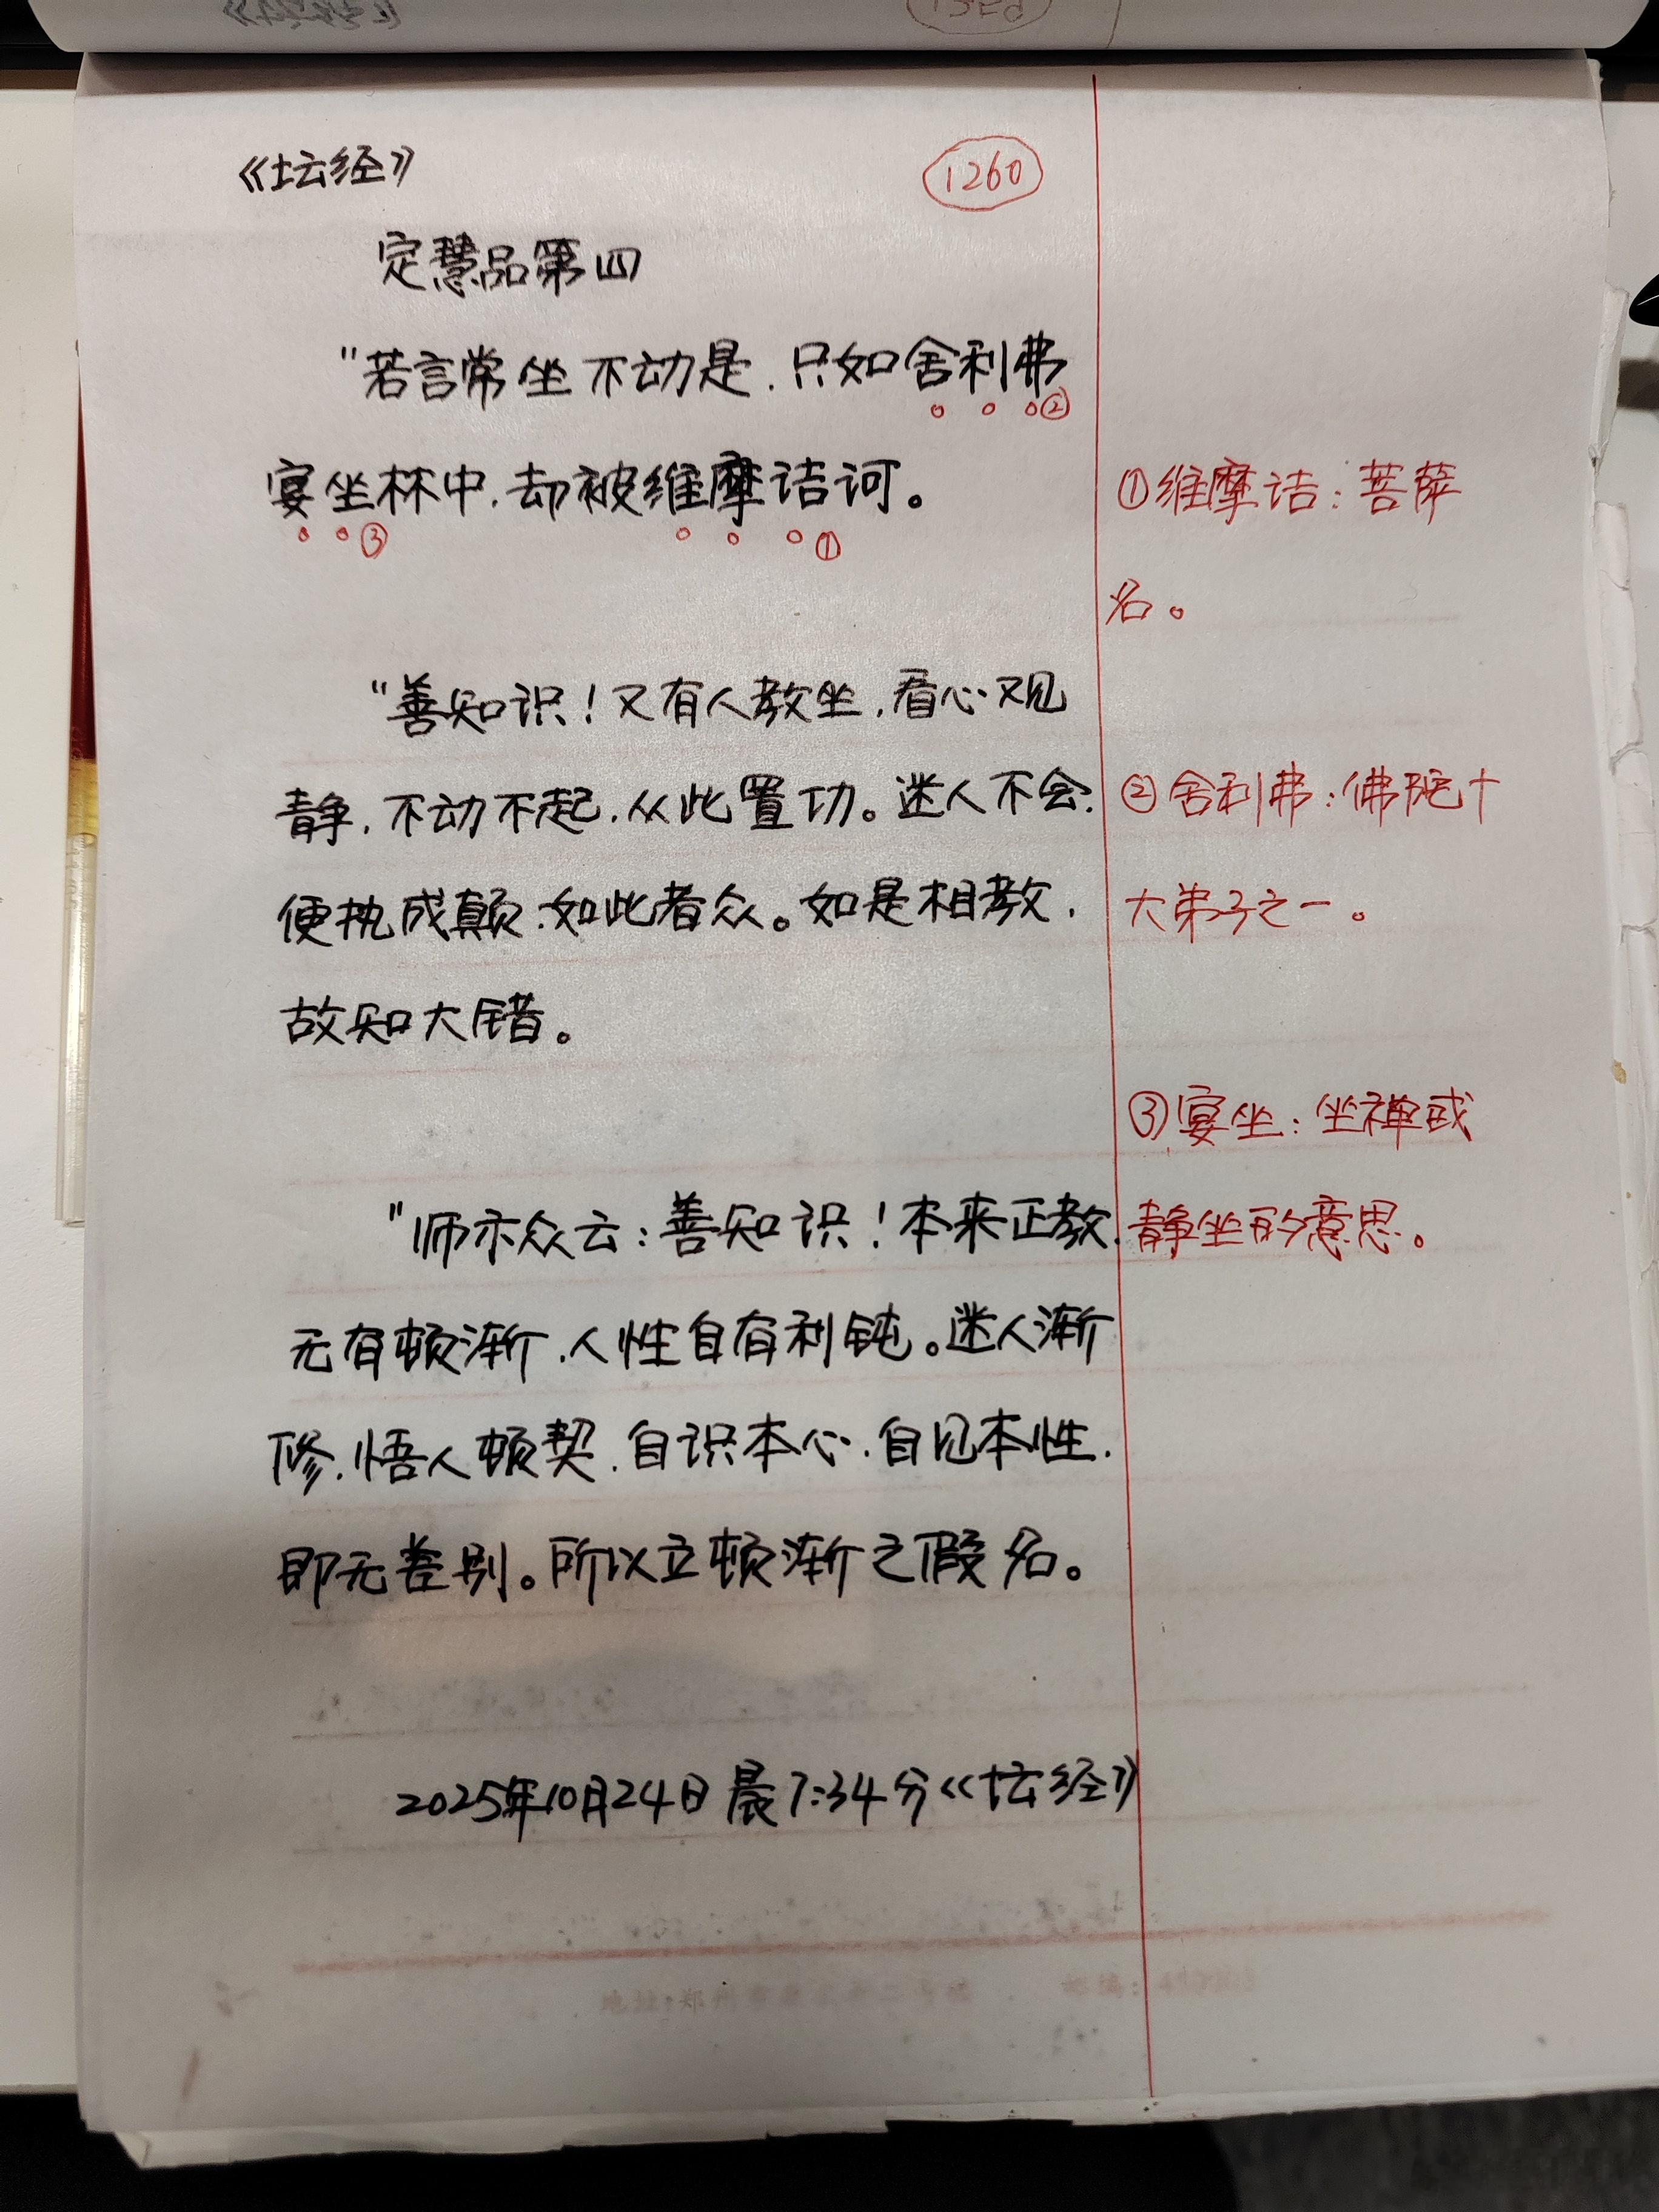 《坛经》
1260
定慧品第四
"若言常坐不动是,只如舍利弗②
宴坐③林中,却被维摩诘①诃。
"善知识!又有人教坐,看心观
静,不动不起,从此置功。迷人不会,
便执成颠,如此者众。如是相教,
故知大错。
"师示众云:善知识!本来正教,
无有顿渐,人性自有利钝。迷人渐
修,悟人顿契,自识本心,自见本性,
即无差别。所以立顿渐之假名。
2025年10月24日晨7:34分《坛经》
①维摩诘:菩萨
名。
②舍利弗:佛陀十
大弟子之一。
③宴坐:坐禅或
静坐的意思。